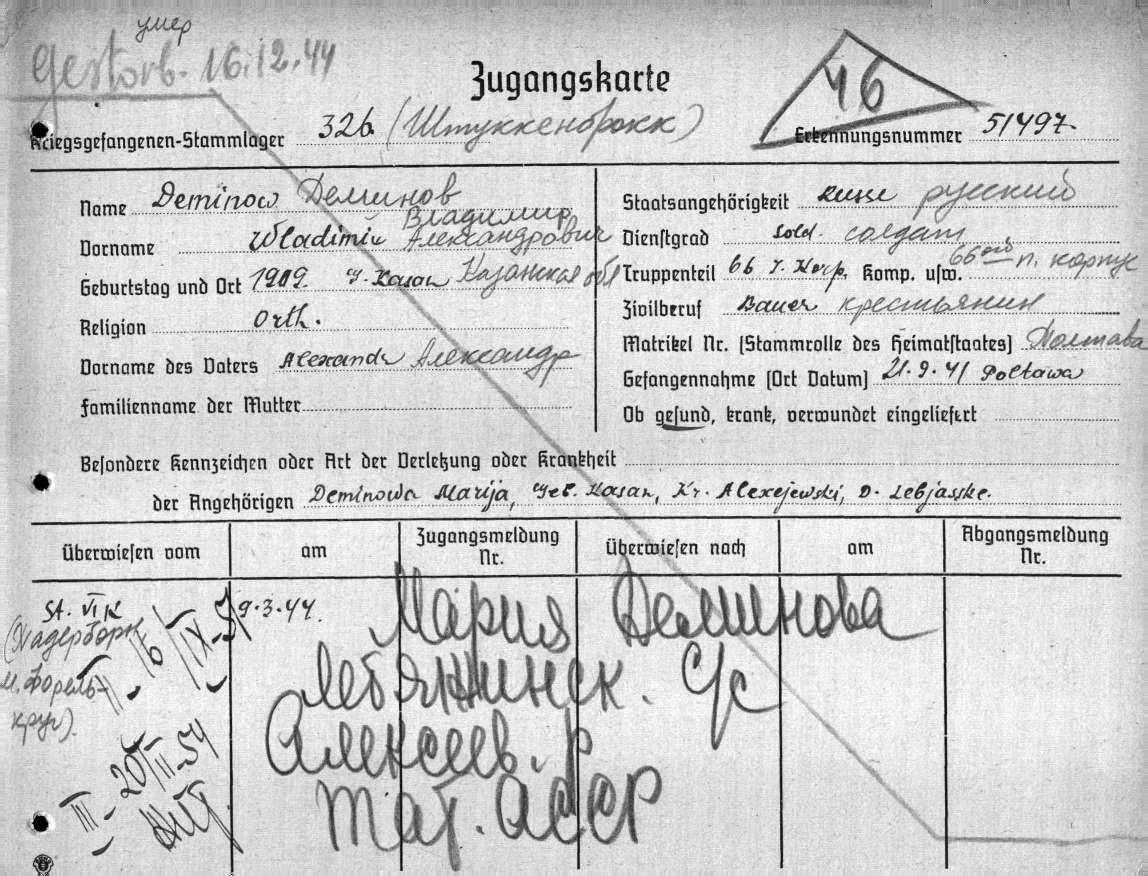 умер
Gestorb. 16.12.44
Zugangskarte
46
Kriegsgefangenen-Stammlager 326 (Штуккенброкк) Erkennungsnummer 51497.
Name Deminow Деминов
Vorname Wladimir Владимир Александрович
Geburtstag und Ort 1909. G. Kasan Казанская обл
Religion orth.
Vorname des Vaters Alexander Александр
Familienname der Mutter
Staatsangehörigkeit Russe русский
Dienstgrad Sold. солдат
Truppenteil 66 I. Korp. Komp. usw. 66ой п. корпус
Zivilberuf Bauer крестьянин
Matrikel Nr. (Stammrolle des Heimatstaates) Полтава
Gefangennahme (Ort Datum) 21.9.41 Poltawa
Ob gesund, krank, verwundet eingeliefert
Besondere Kennzeichen oder Art der Verletzung oder Krankheit
der Angehörigen Deminowa Marija, Geb. Kasan, Kr. Alexejewski, D. Lebjasske.
Überwiesen vom
am
Zugangsmeldung Nr.
Überwiesen nach
am
Abgangsmeldung Nr.
St. VI K 9.3.44.
Мария Деминова
Лебяжинск. с/с
Алексеев. р
Тат. АССР
III-20/III-54